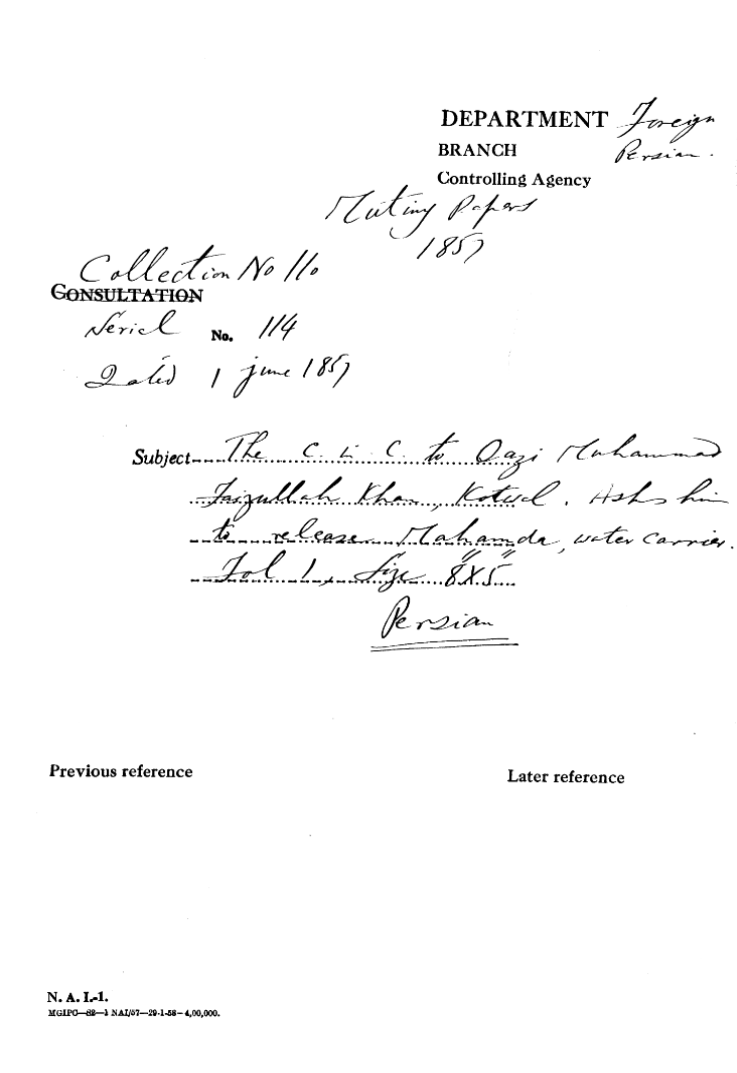 DEPARTMENT Foreign
BRANCH Persian.
Controlling Agency
Mutiny Papers
1857
Collection No 110
CONSULTATION
Serial No. 114
Dated 1 june 1857
Subject The C. in C. to Qazi Muhammad
Faizullah Khan, Kotwal. Asks him
to release Mahamda, water carrier.
Fol 1, Size 8"X5"
Persian
Previous reference
Later reference
N. A. I.-1.
MGIPC—S2—1 NAI/57—29-1-58—4,00,000.